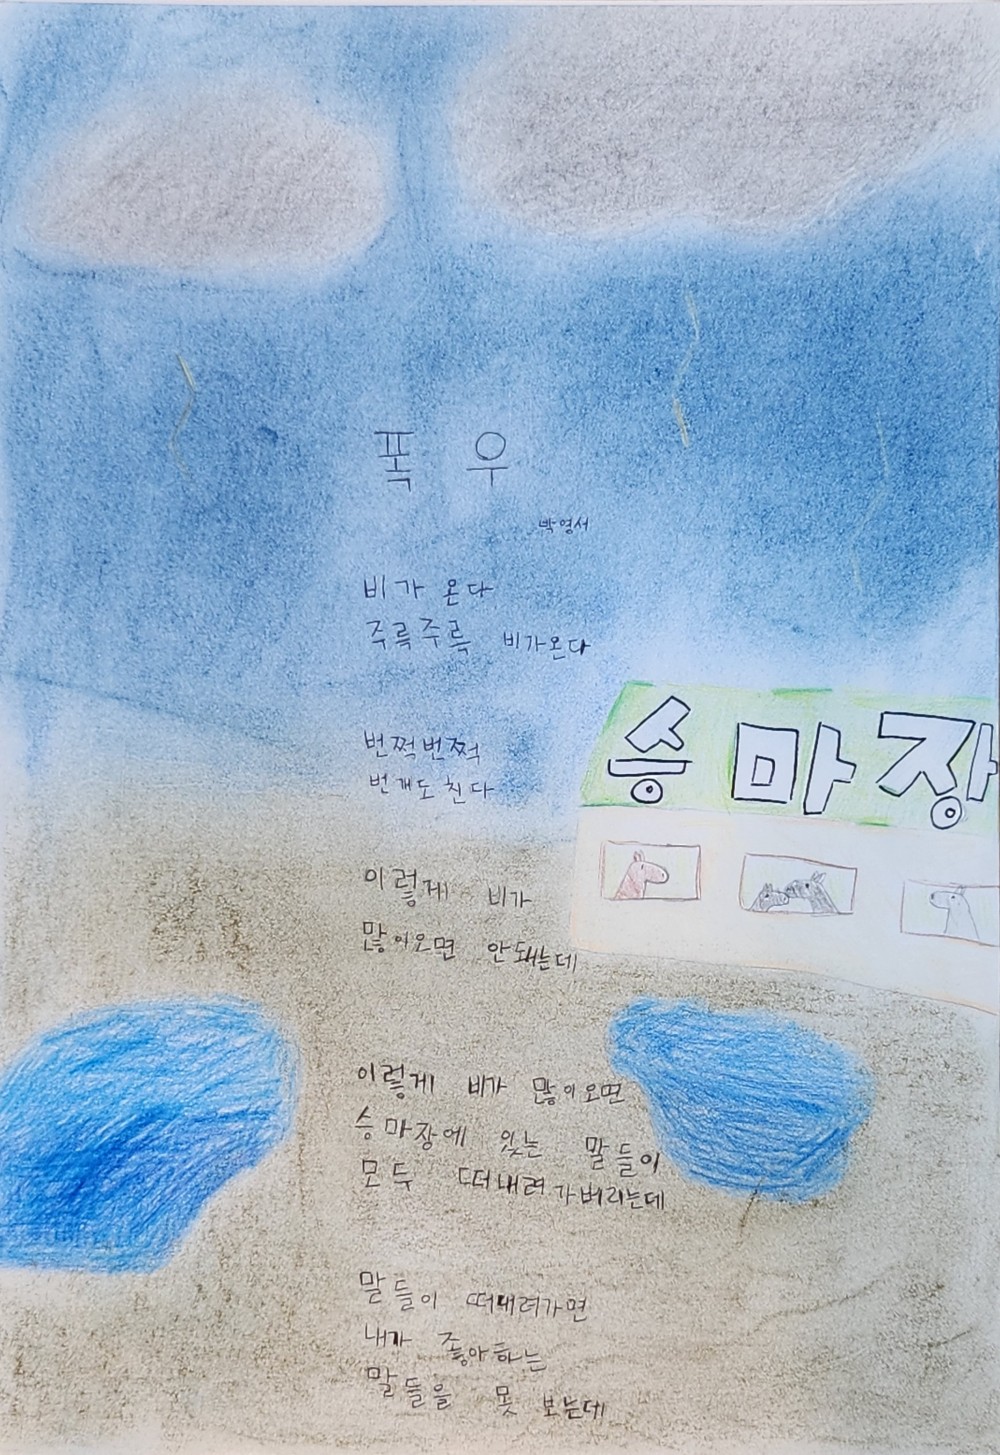 폭우
박영서
비가 온다
주륵주륵 비가온다
번쩍번쩍
번개도 친다
승마장
이렇게 비가
많이오면 안돼는데
이렇게 비가 많이오면
승마장에 있는 말들이
모두 떠내려가버리는데
말들이 떠내려가면
내가 좋아하는
말들을 못 보는데